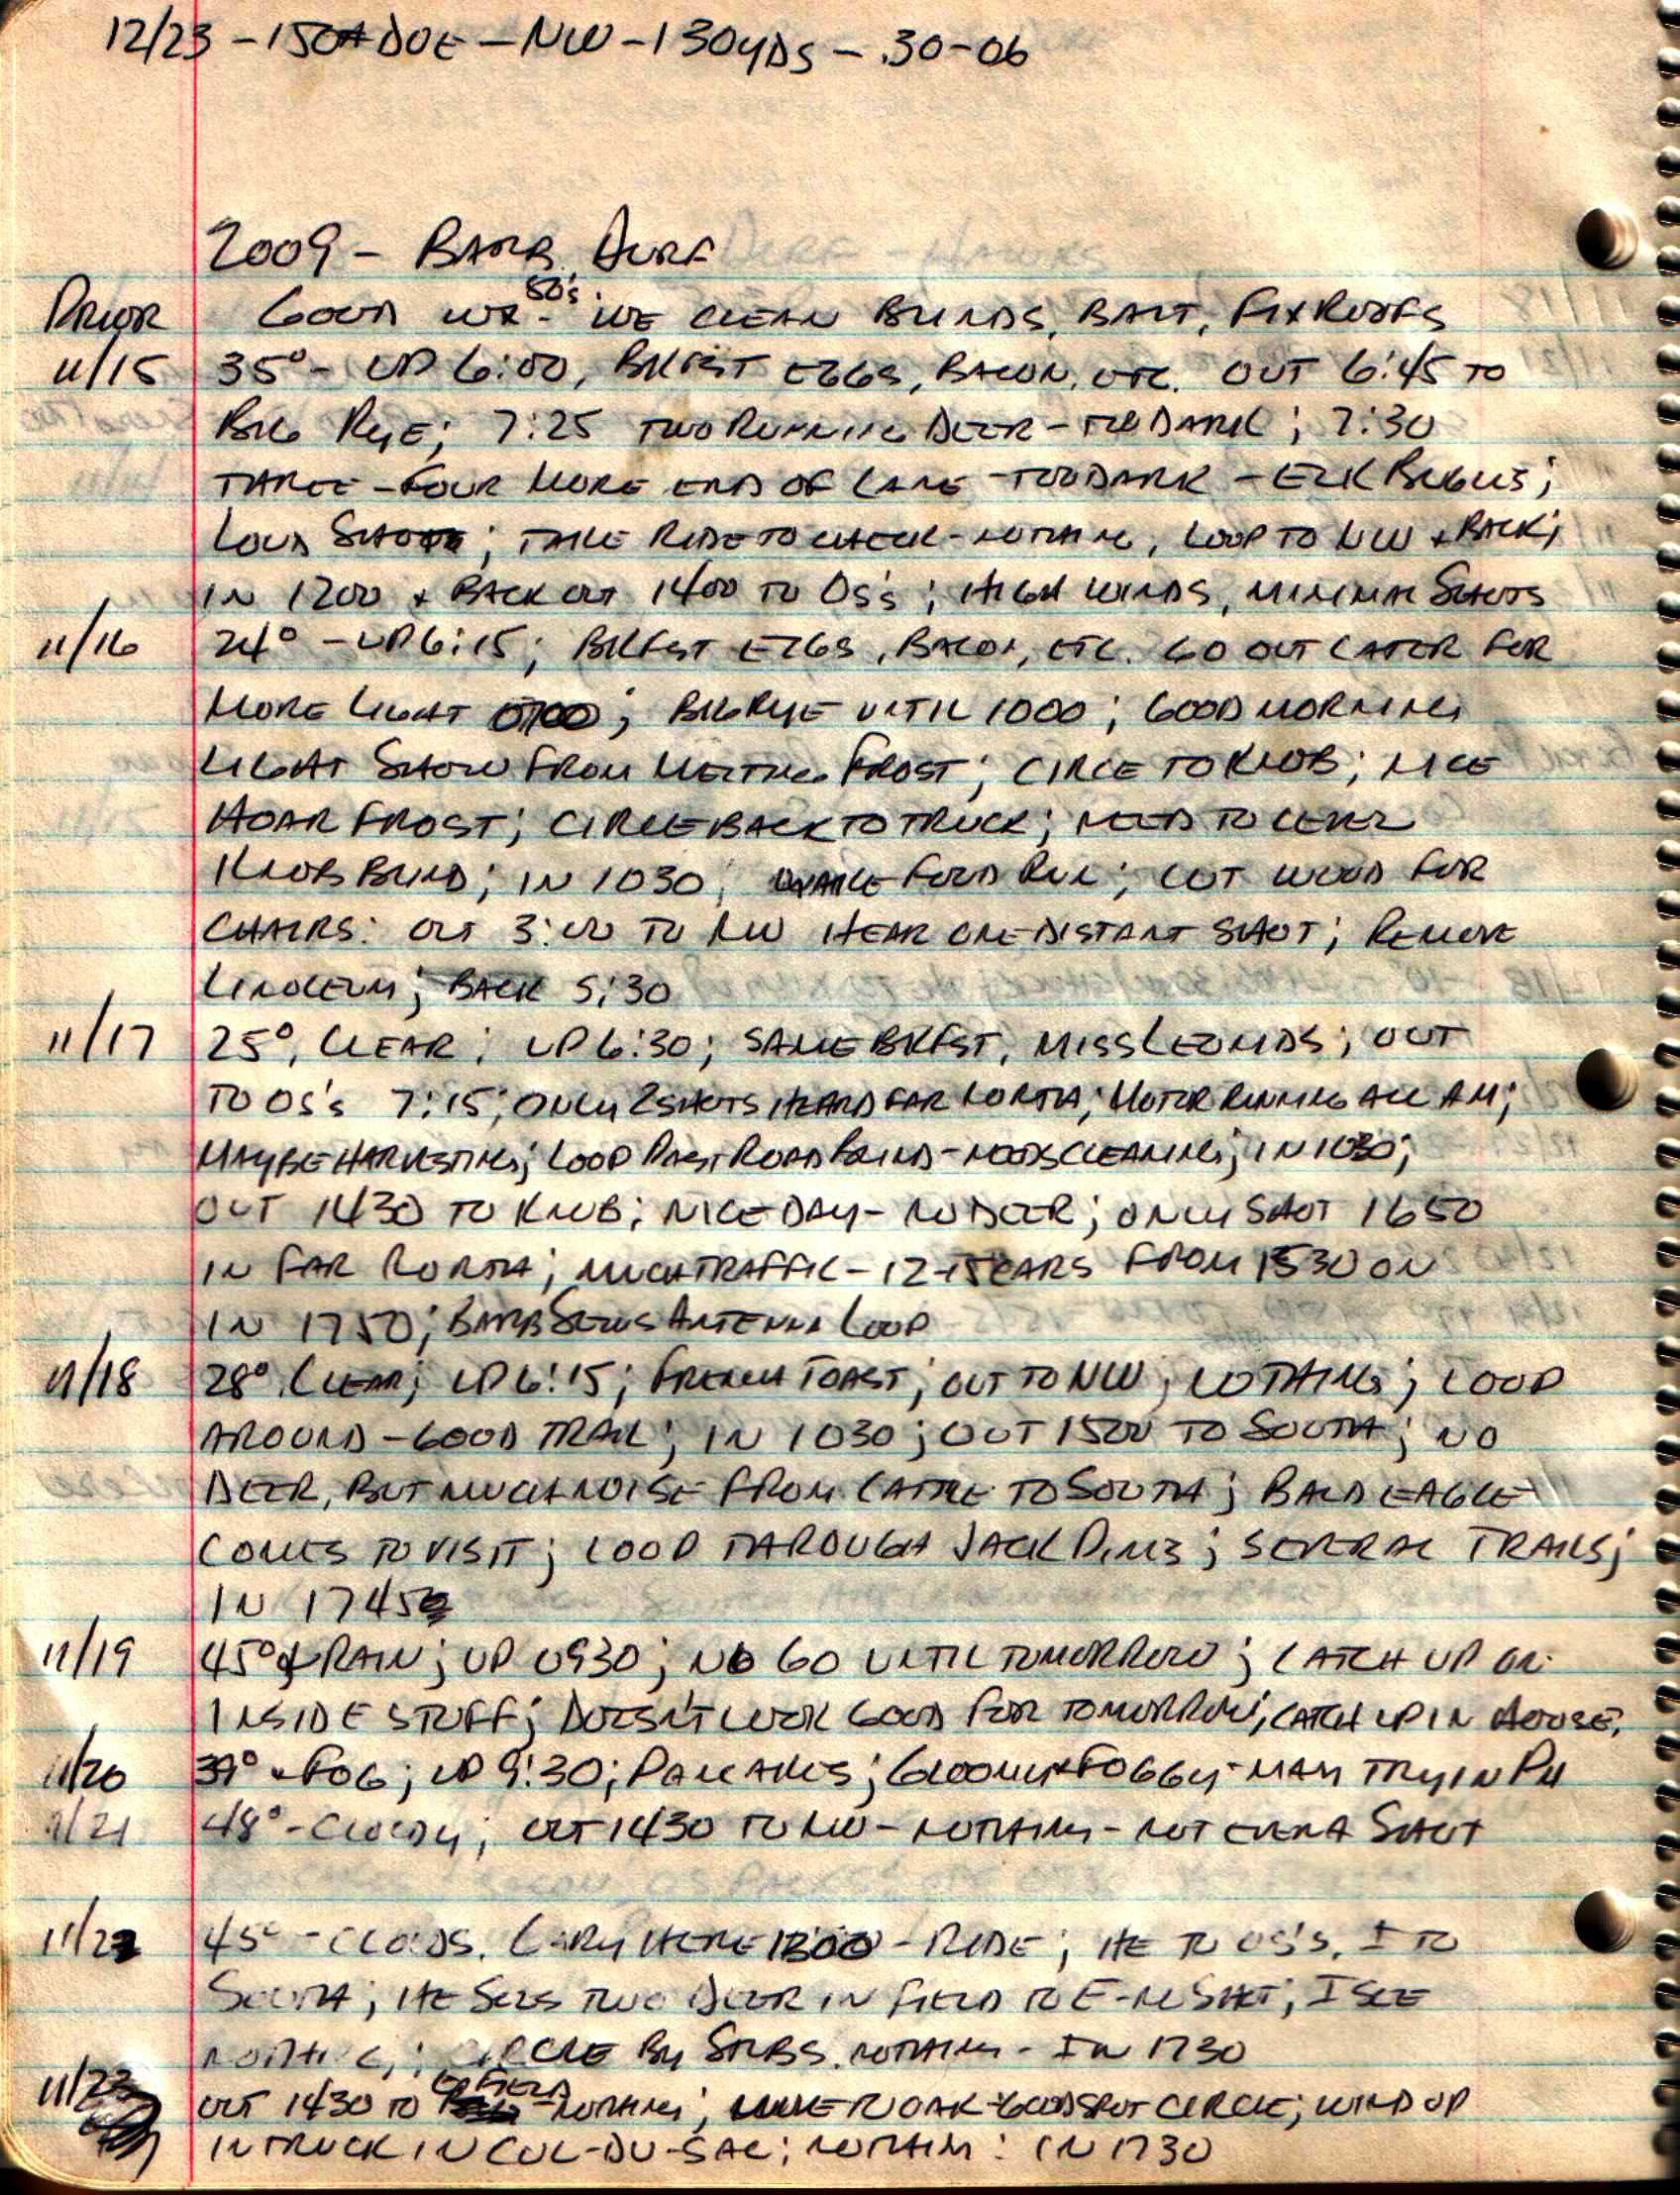 12/23 - 150# DOE - NW - 130 YDS - .30-06
2009 - BARB
PRIOR GOOD WX - 50's. WE CLEAN BLINDS, BAIT, FIX ROOFS
11/15 35° - UP 6:00, BKFST EGGS, BACON, ETC. OUT 6:45 TO
BIG RYE; 7:25 TWO RUNNING DEER - TOO DARK; 7:30
THREE - FOUR MORE END OF LANE - TOO DARK - ELK BUGLES;
LOUD; TAKE RIDE TO CHECK - NOTHING, LOOP TO NW & BACK;
IN 1200 & BACK OUT 1400 TO OS's; HIGH WINDS, MINIMAL SHOTS
11/16 24° - UP 6:15; BKFST EGGS, BACON, ETC. GO OUT LATER FOR
MORE LIGHT 0700; BIG RYE UNTIL 1000; GOOD MORNING
LIGHT SHOW FROM MELTING FROST; CIRCLE TO KNOB; NICE
HOAR FROST; CIRCLE BACK TO TRUCK; NEED TO LEVEL
KNOB BLIND; IN 1030; MAKE FOOD RUN; CUT WOOD FOR
CHAIRS: OUT 3:00 TO NW HEAR ONE DISTANT SHOT; REMOVE
LINOLEUM; BACK 5:30
11/17 25°, CLEAR; UP 6:30; SAME BKFST, MISS LEONIDS; OUT
TO OS's 7:15; ONLY 2 SHOTS HEARD FAR NORTH; MOTOR RUNNING ALL AM;
MAYBE HARVESTING; LOOP PAST ROAD BLIND - NEEDS CLEANING; IN 1030;
OUT 1430 TO KNOB; NICE DAY - NO DEER; ONLY SHOT 1650
IN FAR NORTH; MUCH TRAFFIC - 12-15 CARS FROM 1530 ON
IN 1750; BARB SEWS ANTENNA LOOP
11/18 28° CLEAR; UP 6:15; FRENCH TOAST; OUT TO NW; NOTHING; LOOP
AROUND - GOOD TRAIL; IN 1030; OUT 1500 TO SOUTH; NO
DEER, BUT MUCH NOISE FROM CATTLE TO SOUTH; BALD EAGLE
COMES TO VISIT; LOOP THROUGH JACK PINES; SEVERAL TRAILS;
IN 1745
11/19 45° & RAIN; UP 0930; NO GO UNTIL TOMORROW; CATCH UP ON
INSIDE STUFF; DOESN'T LOOK GOOD FOR TOMORROW; CATCH UP IN HOUSE;
11/20 39° & FOG; UP 9:30; PANCAKES; GLOOMY & FOGGY - MAY TRY IN PM
11/21 48° - CLOUDY; OUT 1430 TO NW - NOTHING - NOT EVEN A SHOT
11/22 45° - CLOUDS. HERE 1300 - RIDE; HE TO OS's, I TO
SOUTH; HE SEES TWO DEER IN FIELD TO E - NO SHOT; I SEE
NOTHING; CIRCLE BY NOTHING - IN 1730
11/23 OUT 1430 TO FIELD - NOTHING; MOVE TO OAK - GOOD SPOT CIRCLE; WIND UP
IN TRUCK IN CUL-DU-SAC; NOTHING: IN 1730